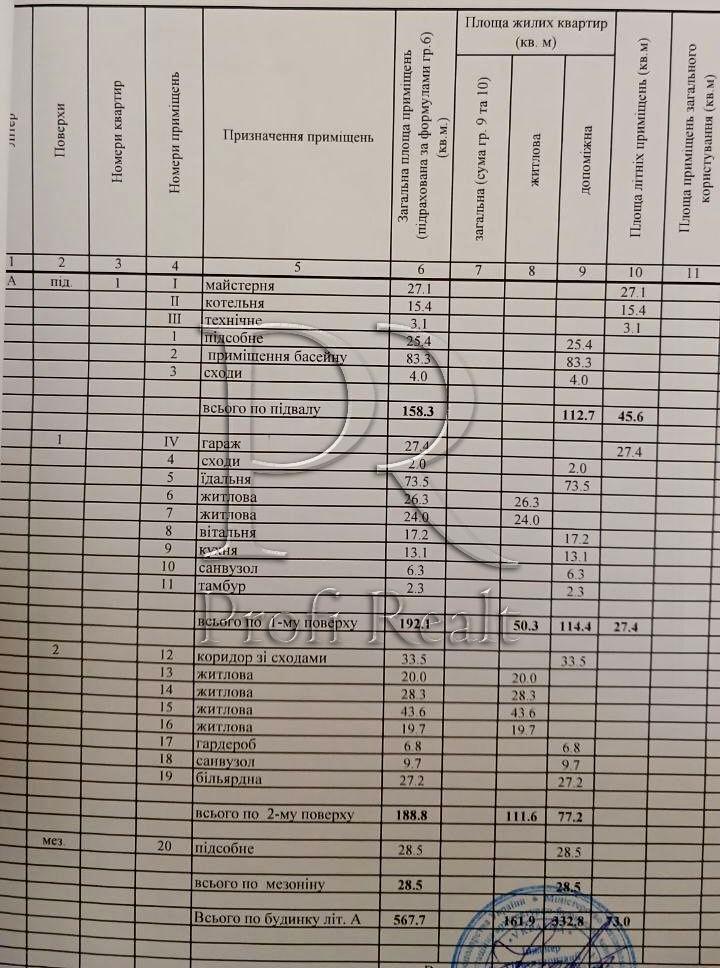 Літер
Поверхи
Номери квартир
Номери приміщень
Призначення приміщень
Загальна площа приміщень (підрахована за формулами гр.6) (кв.м.)
Площа жилих квартир (кв. м)
загальна (сума гр. 9 та 10)
житлова
допоміжна
Площа літніх приміщень (кв.м)
Площа приміщень загального користування (кв.м)
1 2 3 4 5 6 7 8 9 10 11
А під. 1 I майстерня 27.1 27.1
II котельня 15.4 15.4
III технічне 3.1 3.1
1 підсобне 25.4 25.4
2 приміщення басейну 83.3 83.3
3 сходи 4.0 4.0
всього по підвалу 158.3 112.7 45.6
1 IV гараж 27.4 27.4
4 сходи 2.0 2.0
5 їдальня 73.5 73.5
6 житлова 26.3 26.3
7 житлова 24.0 24.0
8 вітальня 17.2 17.2
9 кухня 13.1 13.1
10 санвузол 6.3 6.3
11 тамбур 2.3 2.3
всього по 1-му поверху 192.1 50.3 114.4 27.4
Profi Realt
2 12 коридор зі сходами 33.5 33.5
13 житлова 20.0 20.0
14 житлова 28.3 28.3
15 житлова 43.6 43.6
16 житлова 19.7 19.7
17 гардероб 6.8 6.8
18 санвузол 9.7 9.7
19 більярдна 27.2 27.2
всього по 2-му поверху 188.8 111.6 77.2
мез. 20 підсобне 28.5 28.5
всього по мезоніну 28.5 28.5
Всього по будинку літ. А 567.7 161.9 332.8 73.0